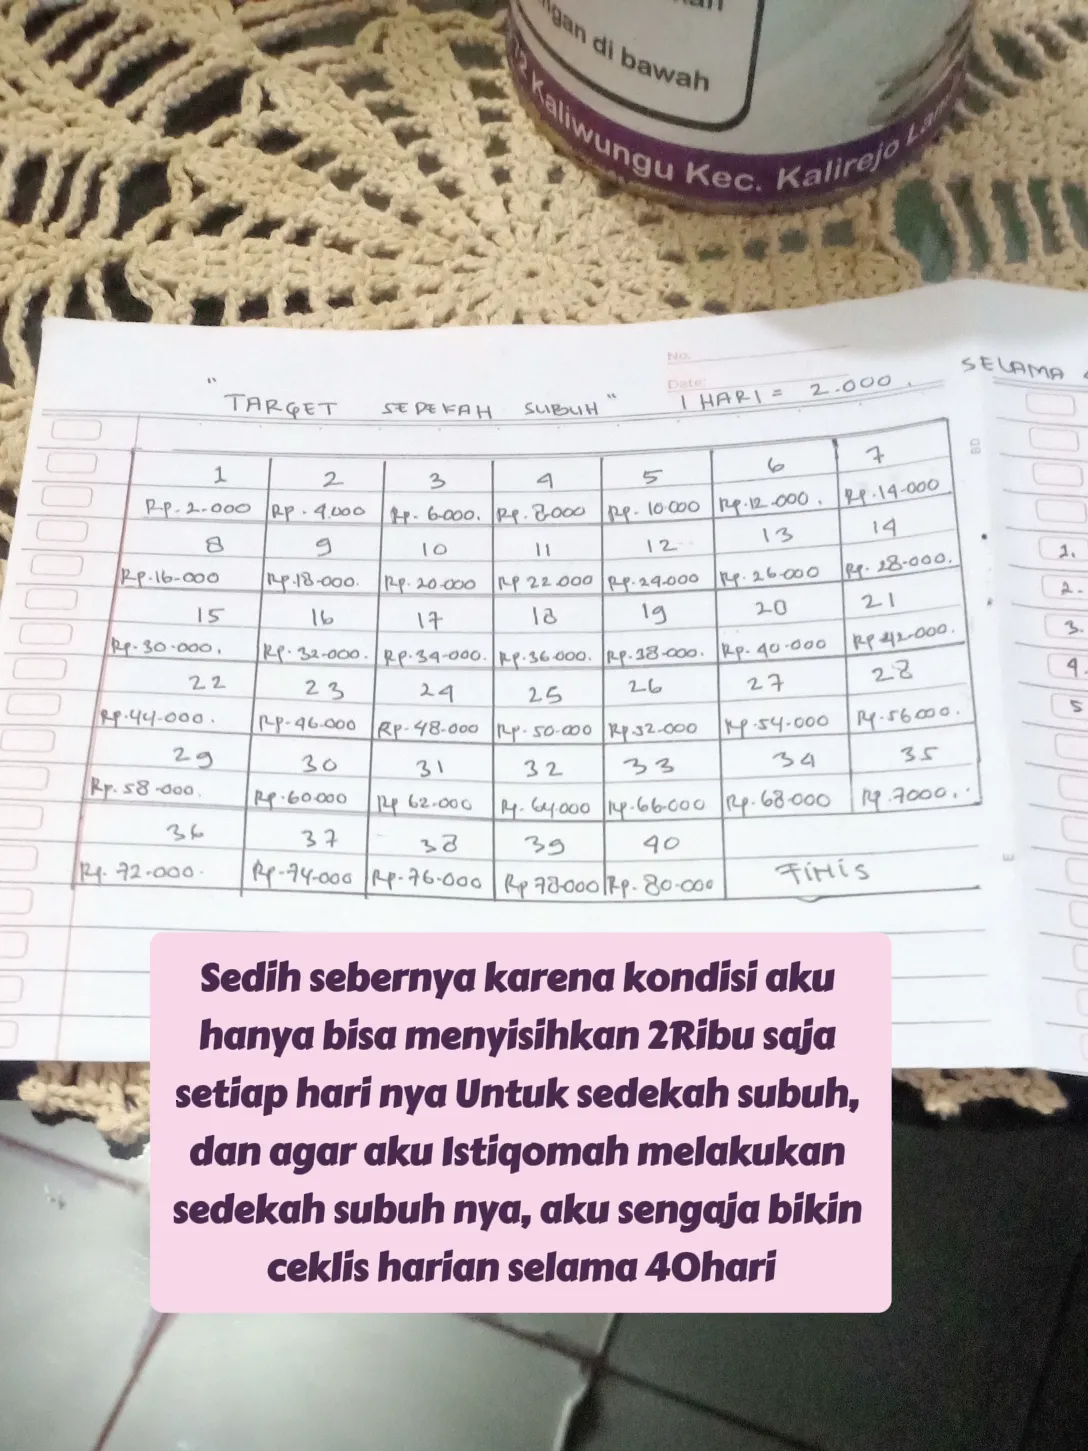 ngan di bawah
Kaliwungu Kec. Kalirejo
No.
Date:
SELAMA
" TARGET SEDEKAH SUBUH " 1 HARI = 2.000.
1 2 3 4 5 6 7
Rp. 2.000 Rp. 4.000 Rp. 6000. Rp. 8000 Rp. 10.000 Rp. 12.000. Rp. 14.000
8 9 10 11 12 13 14
Rp. 16.000 Rp. 18.000. Rp. 20.000 Rp 22.000 Rp. 24.000 Rp. 26.000 Rp. 28.000.
15 16 17 18 19 20 21
Rp. 30.000. Rp. 32.000. Rp. 34.000. Rp. 36.000. Rp. 38.000. Rp. 40.000 Rp 42.000.
22 23 24 25 26 27 28
Rp. 44.000. Rp. 46.000 Rp. 48.000 Rp. 50.000 Rp. 52.000 Rp. 54.000 Rp. 56000.
29 30 31 32 33 34 35
Rp. 58.000. Rp. 60.000 Rp 62.000 Rp. 64000 Rp. 66.000 Rp. 68.000 Rp. 7000..
36 37 38 39 40
Rp. 72.000. Rp. 74.000 Rp. 76.000 Rp 78000 Rp. 80.000 FINIS
1.
2.
3.
4.
5
Sedih sebernya karena kondisi aku
hanya bisa menyisihkan 2Ribu saja
setiap hari nya Untuk sedekah subuh,
dan agar aku Istiqomah melakukan
sedekah subuh nya, aku sengaja bikin
ceklis harian selama 40hari